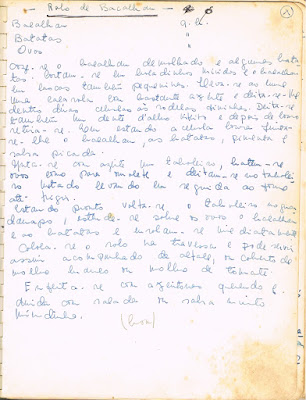 Rolo de Bacalhau
Bacalhau q. b.
Batatas "
Ovos "
Coze-se o bacalhau demolhado e algumas bata-
tas. Cortam-se em bocadinhos miúdos e o bacalhau
em lascas também pequeninas. Leva-se ao lume
uma caçarola com bastante azeite e deita-se-lhe
dentro duas cebolas às rodelas fininhas. Deita-se
também um dente d'alho inteiro e depois de louro
retira-se. Quando a cebola loura junta-
se-lhe o bacalhau, as batatas, pimenta e
salsa picada.
Unta-se com azeite um tabuleiro, batem-se
ovos como para omelete e deitam-se no tabulei-
ro untado levando em seguida ao forno
até
Estando pronto, volta-se o tabuleiro
estende-se sobre os ovos o bacalhau
e as batatas e enrolam-se imediatamente
Coloca-se o rolo na travessa e pode servir
assim acompanhado de alface, ou coberto de
molho branco ou molho de tomate.
Enfeita-se com azeitonas quando é
servida com salada ou salsa muito
miudinha.
(bom)